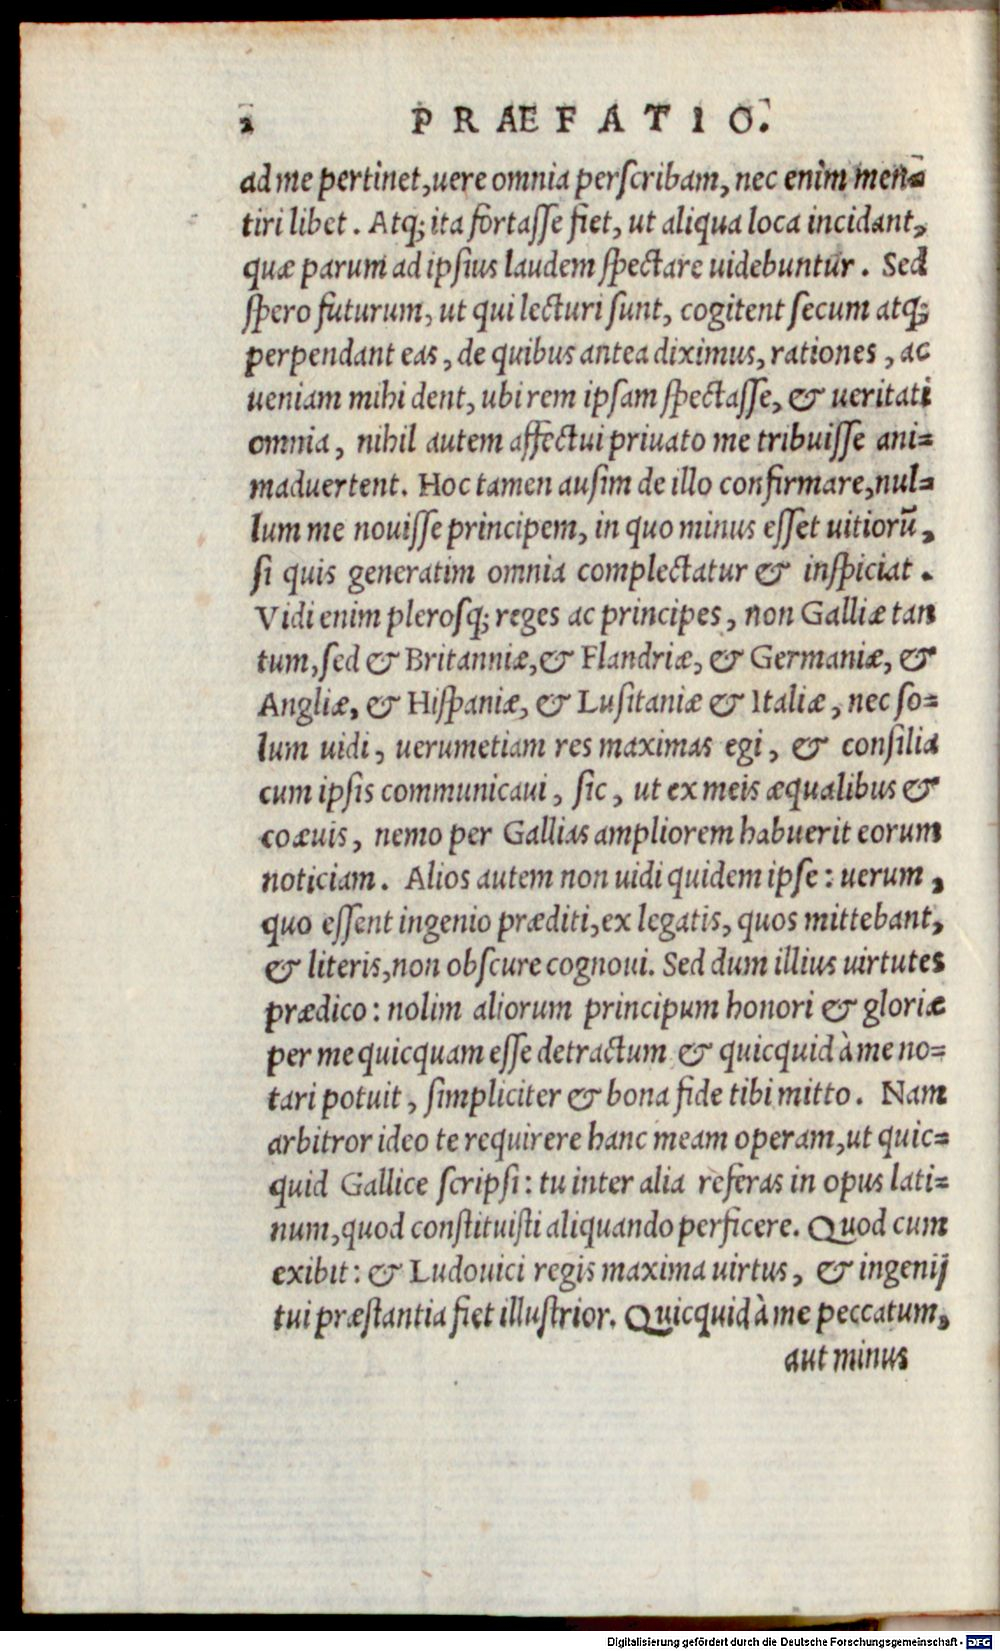 2 PRÆFATIO.
ad me pertinet, uere omnia perſcribam, nec enim men⸗
tiri libet. Atq; ita fortaſſe fiet, ut aliqua loca incidant,
quæ parum ad ipſius laudem ſpectare uidebuntur. Sed
ſpero futurum, ut qui lecturi ſunt, cogitent ſecum atq;
perpendant eas, de quibus antea diximus, rationes, ac
ueniam mihi dent, ubi rem ipſam ſpectaſſe, & ueritati
omnia, nihil autem affectui priuato me tribuiſſe ani⸗
maduertent. Hoc tamen auſim de illo confirmare, nul⸗
lum me nouiſſe principem, in quo minus eſſet uitiorū,
ſi quis generatim omnia complectatur & inſpiciat.
Vidi enim pleroſq; reges ac principes, non Galliæ tan
tum, ſed & Britanniæ, & Flandriæ, & Germaniæ, &
Angliæ, & Hiſpaniæ, & Luſitaniæ & Italiæ, nec ſo⸗
lum uidi, uerumetiam res maximas egi, & conſilia
cum ipſis communicaui, ſic, ut ex meis æqualibus &
coæuis, nemo per Gallias ampliorem habuerit eorum
noticiam. Alios autem non uidi quidem ipſe: uerum,
quo eſſent ingenio præditi, ex legatis, quos mittebant,
& literis, non obſcure cognoui. Sed dum illius uirtutes
prædico: nolim aliorum principum honori & gloriæ
per me quicquam eſſe detractum & quicquid à me no⸗
tari potuit, ſimpliciter & bona fide tibi mitto. Nam
arbitror ideo te requirere hanc meam operam, ut quic⸗
quid Gallice ſcripſi: tu inter alia referas in opus lati⸗
num, quod conſtituiſti aliquando perficere. Quod cum
exibit: & Ludouici regis maxima uirtus, & ingenij
tui præſtantia fiet illuſtrior. Quicquid à me peccatum,
aut minus
Digitalisierung gefördert durch die Deutsche Forschungsgemeinschaft - DFG